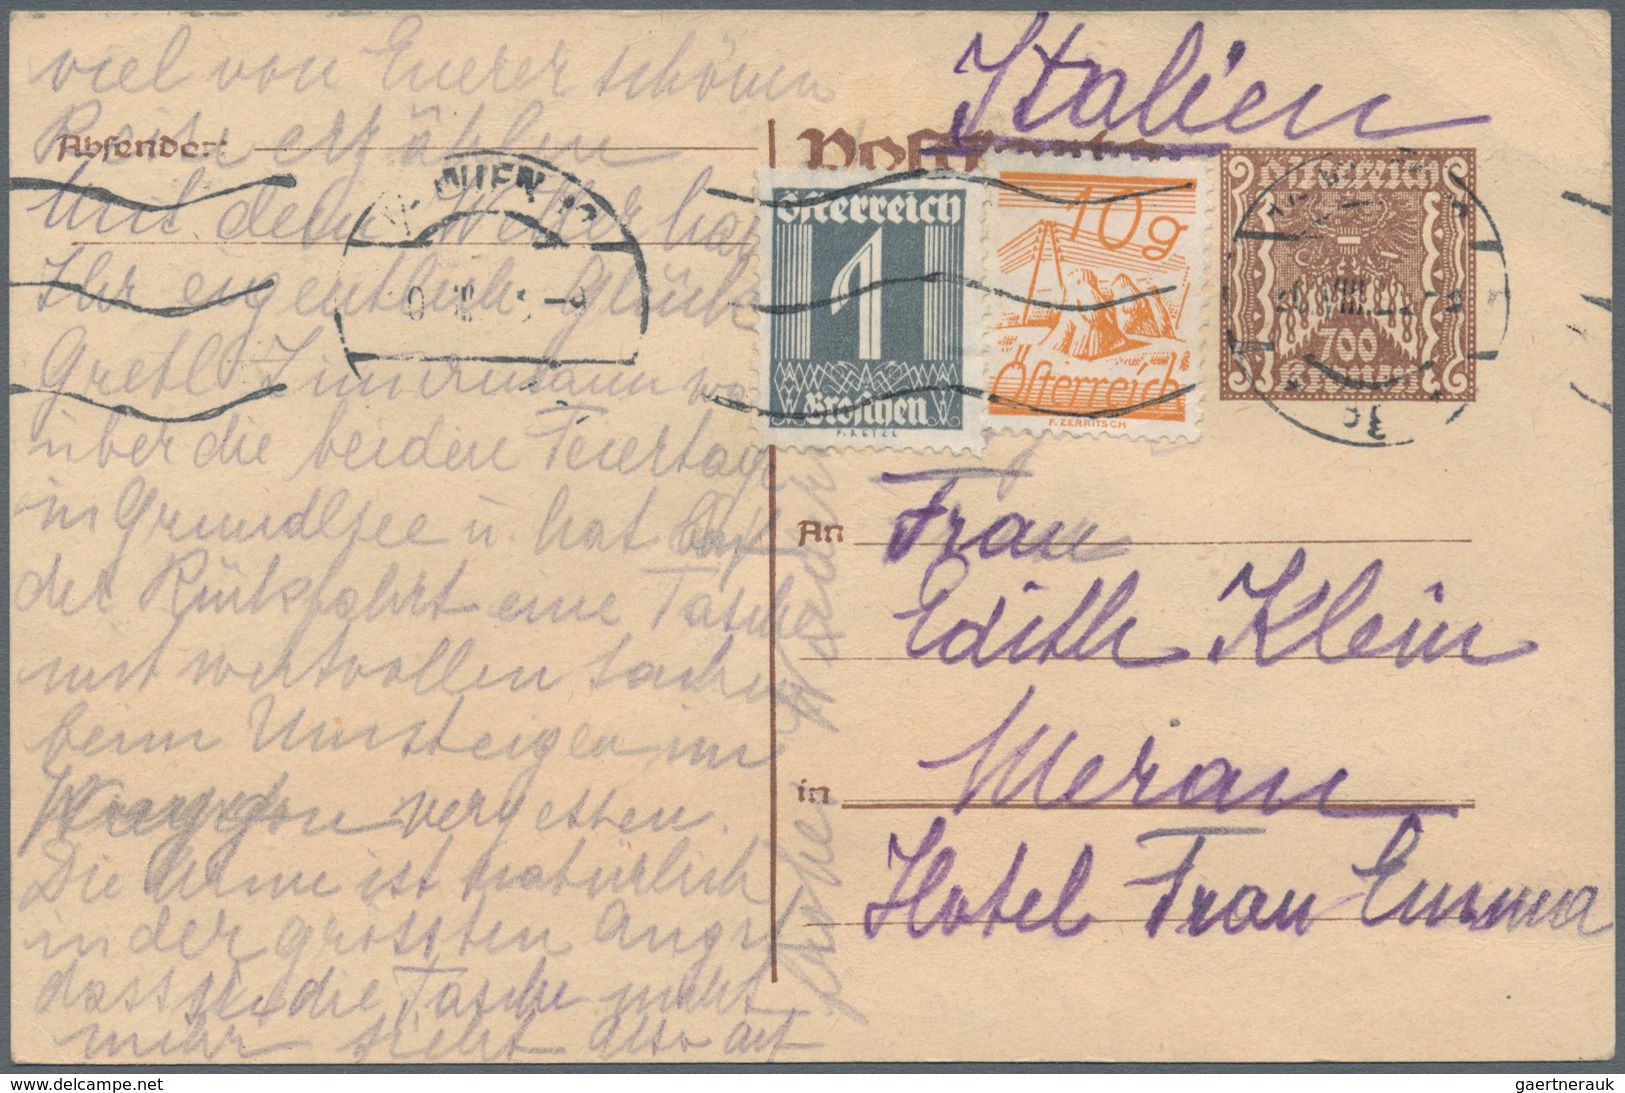 viel von Euerer schönen
Reise erzählen
Mit dem Wetter habt
Ihr eigentlich Glück
Gretl Zimmermann war
über die beiden Feiertage
in Grundlsee u. hat bei
der Rückfahrt eine Tasche
mit wertvollen Sachen
beim Umsteigen im
Waggon vergessen.
Die Arme ist natürlich
in der grössten Angst
dass sie die Tasche nicht
mehr sieht also auf
Wiedersehen
Absender:
Italien
Postkarte
WIEN
Österreich
1
Groschen
10g
Österreich
F. ZERRITSCH
Österreich
700
Kronen
An
Frau
Edith Klein
in
Meran
Hotel Frau Emma
gaertnerauk